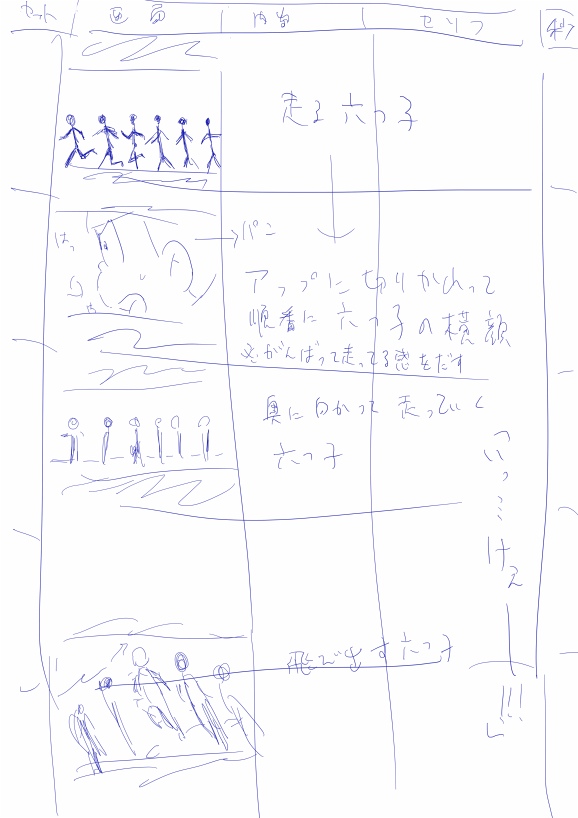 カット 画面 内容 セリフ 秒
走る六つ子
はっ
→パン
はぁ
アップに切りかわって
順番に六つ子の横顔
※がんばって走ってる感をだす
奥に向かって走っていく
六つ子
いっ…けえ――!!!」
飛び出す六つ子